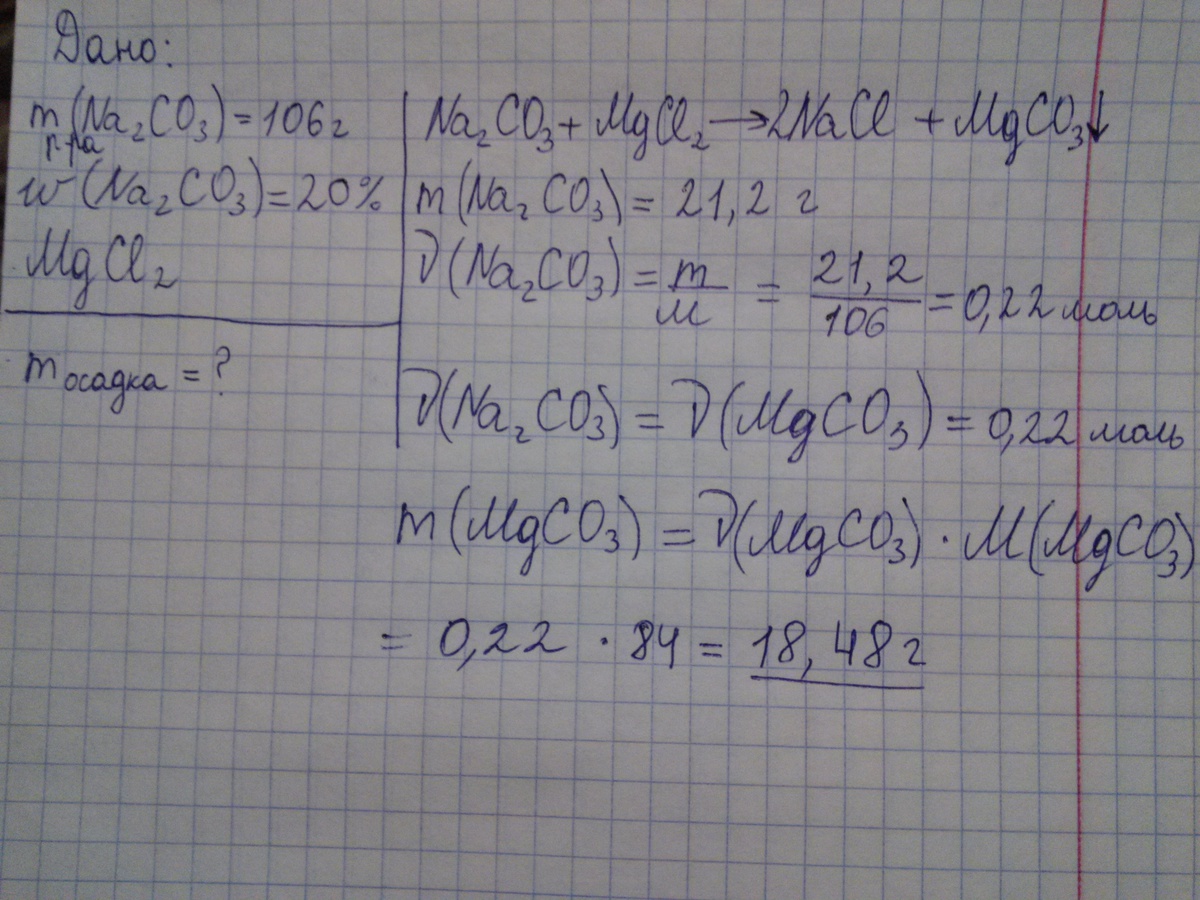 Дано:
m р-ра (Na₂CO₃) = 106 г
w (Na₂CO₃) = 20%
MgCl₂
m осадка = ?
Na₂CO₃ + MgCl₂ → 2NaCl + MgCO₃↓
m (Na₂CO₃) = 21,2 г
ν (Na₂CO₃) = m/M = 21,2/106 = 0,22 моль
ν(Na₂CO₃) = ν(MgCO₃) = 0,22 моль
m (MgCO₃) = ν(MgCO₃) · M(MgCO₃)
= 0,22 · 84 = 18,48 г